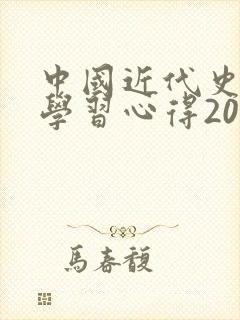 中國近代史
學習心得20
馬春馥